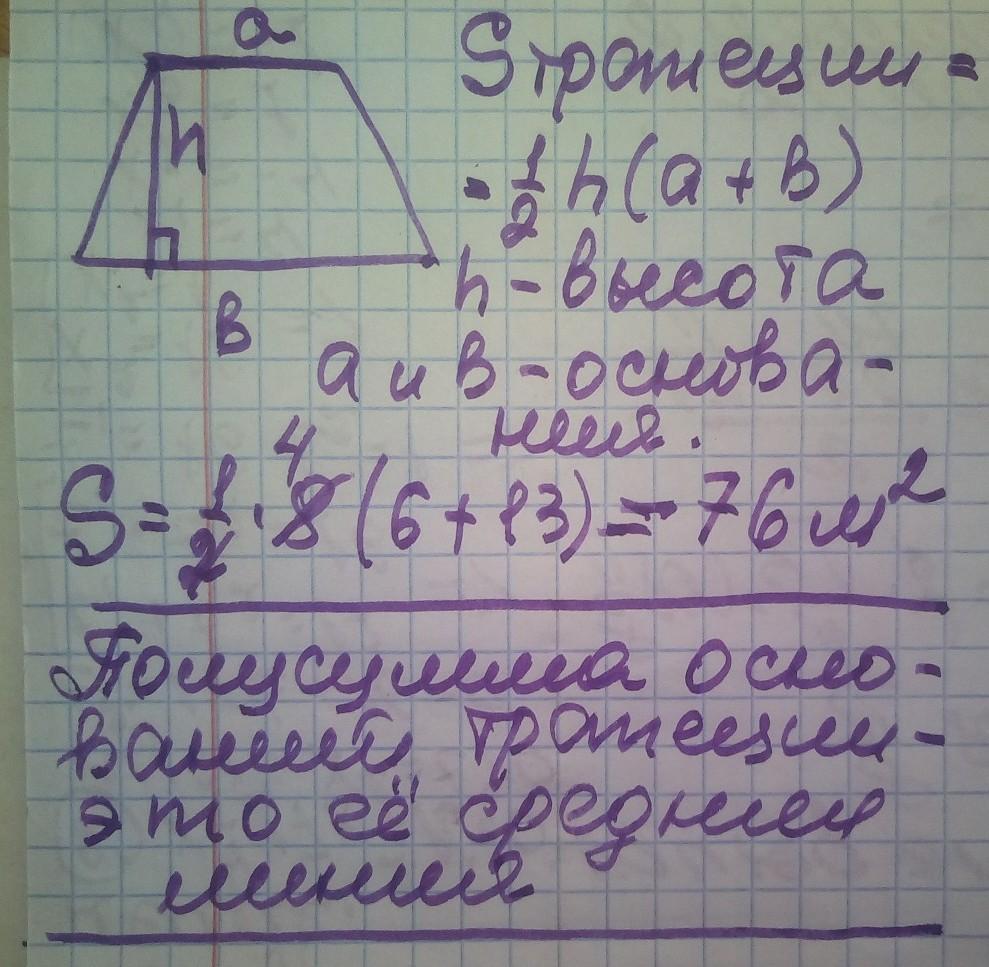 a
Sтрапеции =
h
= 1/2 h (a + в)
h - высота
в
a и в - основа-
ния.
4
S = 1/2 · 8 (6 + 13) = 76 м²
Полусумма осно-
ваний трапеции -
это её средняя
линия